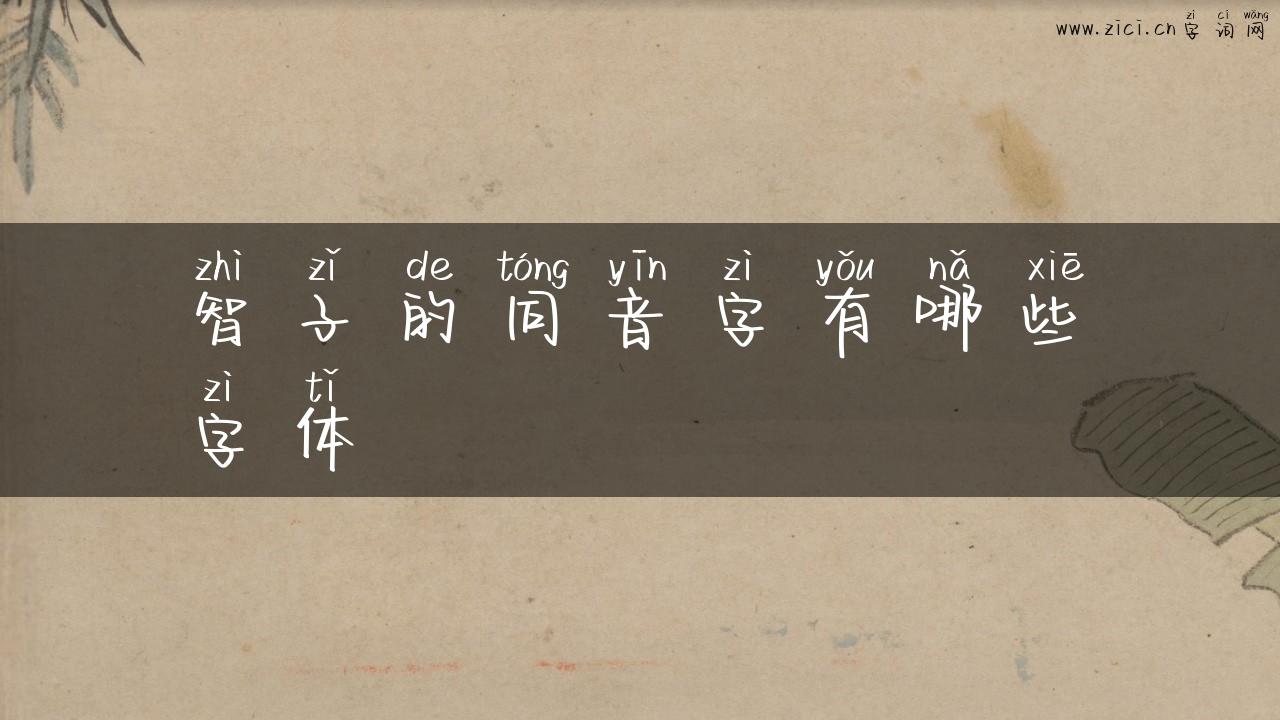 zì cí wǎng
www.zici.cn 字词网
zhì zǐ de tóng yīn zì yǒu nǎ xiē
智子的同音字有哪些
zì tǐ
字体